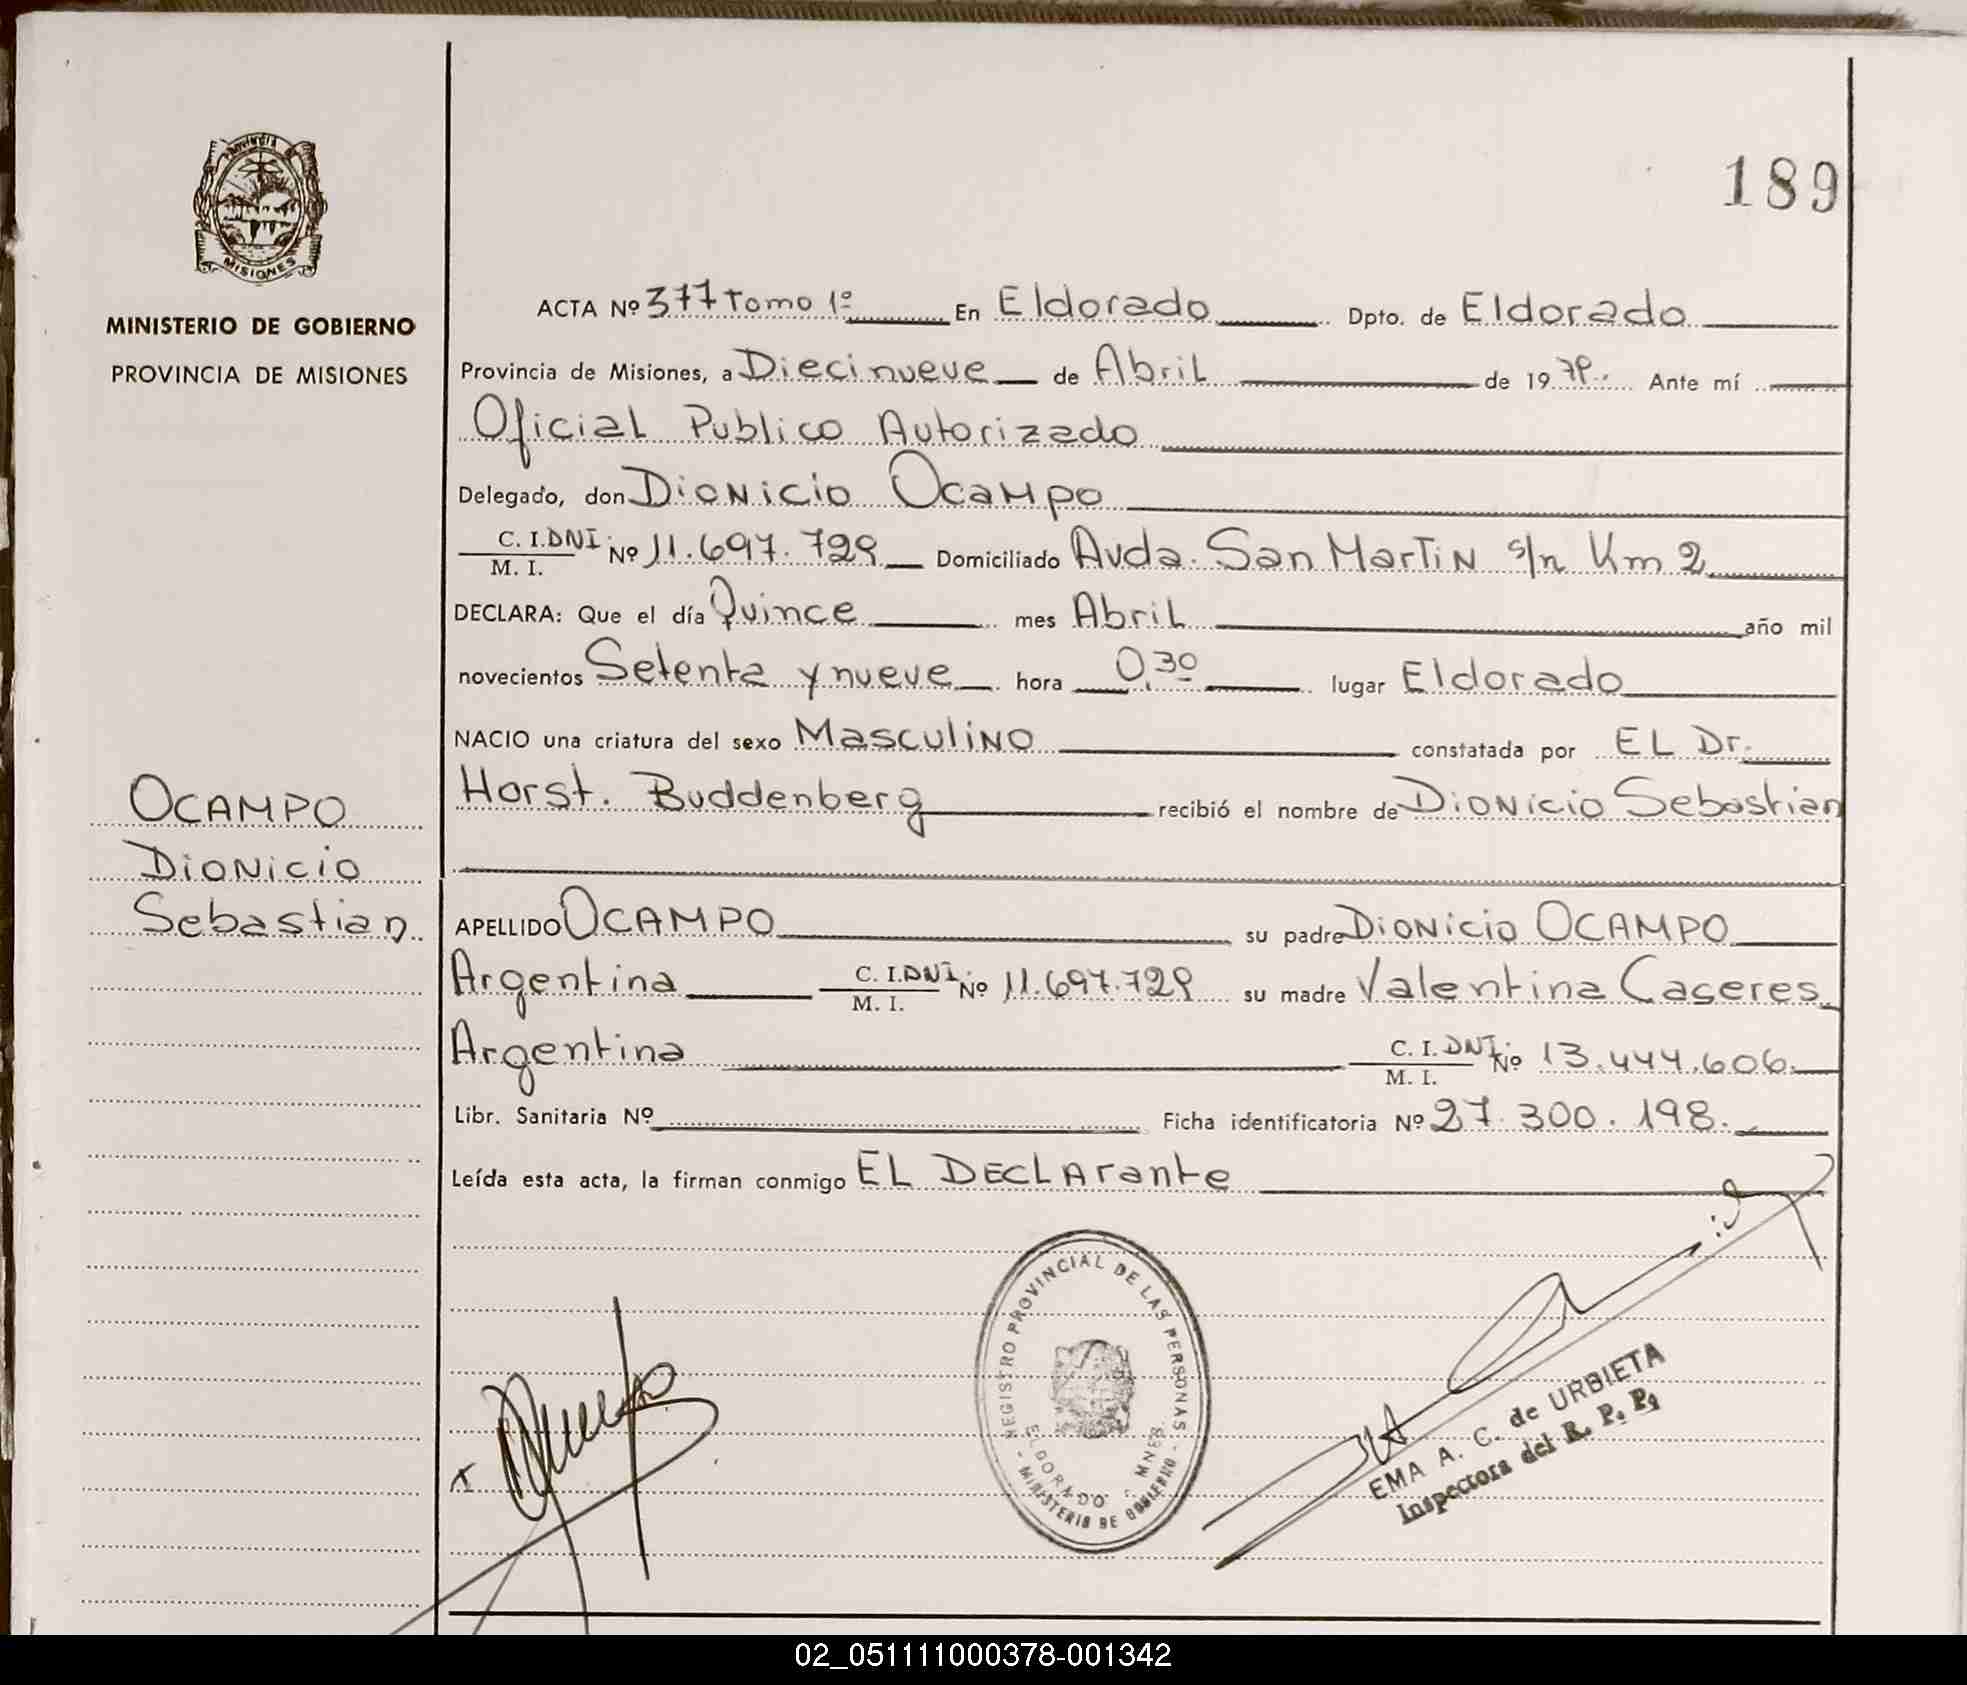 189
Provincia
MISIONES
MINISTERIO DE GOBIERNO
PROVINCIA DE MISIONES
OCAMPO
Dionicio
Sebastian
ACTA Nº 377 Tomo 1º En Eldorado Dpto. de Eldorado
Provincia de Misiones, a Diecinueve de Abril de 1979. Ante mí
Oficial Publico Autorizado
Delegado, don Dionicio Ocampo
C. I. DNI Nº 11.697.729 Domiciliado Avda. San Martin s/n Km 2
M. I.
DECLARA: Que el día Quince mes Abril año mil
novecientos Setenta y nueve hora 0,30 lugar Eldorado
NACIO una criatura del sexo Masculino constatada por EL Dr.
Horst. Buddenberg recibió el nombre de Dionicio Sebastian
APELLIDO OCAMPO su padre Dionicio OCAMPO
Argentina C. I. DNI Nº 11.697.729 su madre Valentina Caseres
M. I.
Argentina C. I. DNI Nº 13.444.606.
M. I.
Libr. Sanitaria Nº Ficha identificatoria Nº 27.300.198.
Leída esta acta, la firman conmigo EL DECLArante
REGISTRO PROVINCIAL DE LAS PERSONAS
- MINISTERIO DE GOBIERNO -
ELDORADO MNES.
EMA A. C. de URBIETA
Inspectora del R. P. P.
02_051111000378-001342